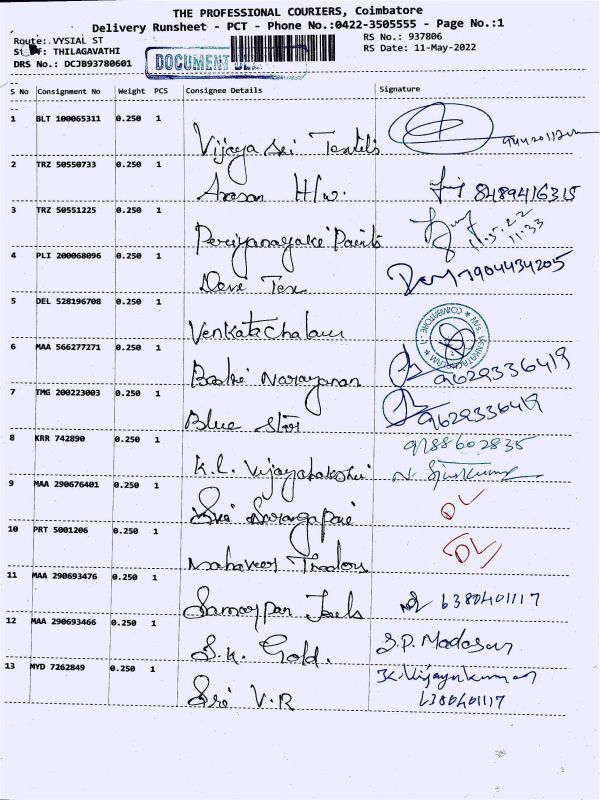 THE PROFESSIONAL COURIERS, Coimbatore
Delivery Runsheet - PCT - Phone No.:0422-3505555 - Page No.:1
Route: VYSIAL ST RS No.: 937806
THILAGAVATHI RS Date: 11-May-2022
DRS No.: DCJB93780601 DOCUMENT
S No Consignment No Weight PCS Consignee Details Signature
1 BLT 100065311 0.250 1
Vijaya Sri Textils
2 TRZ 50550733 0.250 1
Arasan H/w. 8489416315
3 TRZ 50551225 0.250 1
Periyanayaki Paints 11.5.22
11.33
4 PLI 200068096 0.250 1
Devi Tex 7904434205
5 DEL 528196708 0.250 1
Venkatachalam COIMBATORE
6 MAA 566277271 0.250 1
Narayanan 9629336419
7 TMG 200223003 0.250 1
Blue Star 9629336419
8 KRR 742890 0.250 1 9788602835
K.L. Vijayalakshmi
9 MAA 290676401 0.250 1
Sri Sarangapani DL
10 PRT 5001206 0.250 1
Mahaveer Traders DL
11 MAA 290693476 0.250 1
Samarpan Jewels 6380401117
12 MAA 290693466 0.250 1
S.K. Gold. S.P. Madasan
13 MYD 7262849 0.250 1 K. Vijayakumar
Sri V.R 6380401117